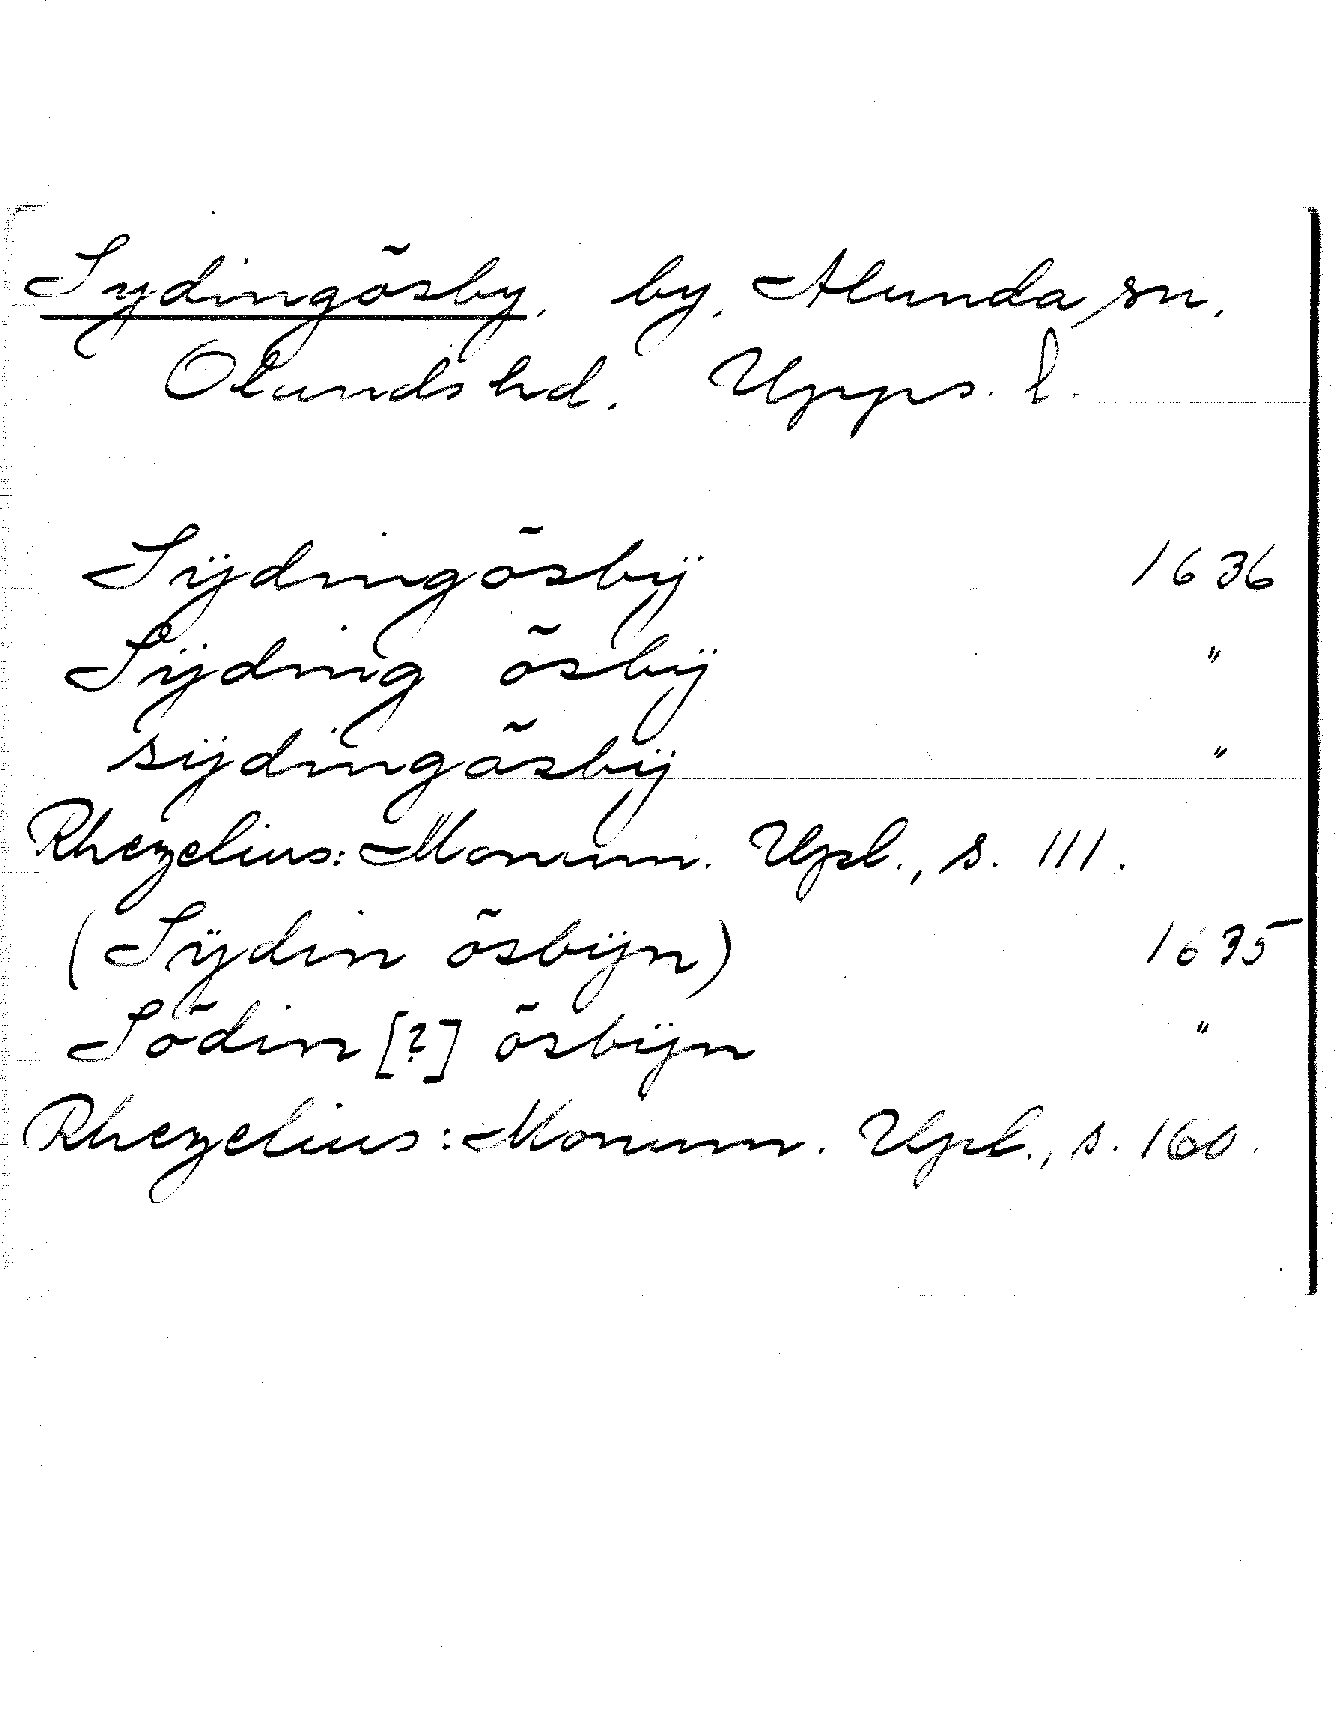 Sydingösby, by, Alunda sn,
Olands hd. Upps. l.
Sÿdingösbÿ 1636
Sÿding ösbÿ "
sÿdingösbÿ "
Rhezelius: Monum. Upl., s. 111.
(Sÿdin ösbÿn) 1635
Södin [?] ösbÿn "
Rhezelius: Monum. Upl., s. 160.